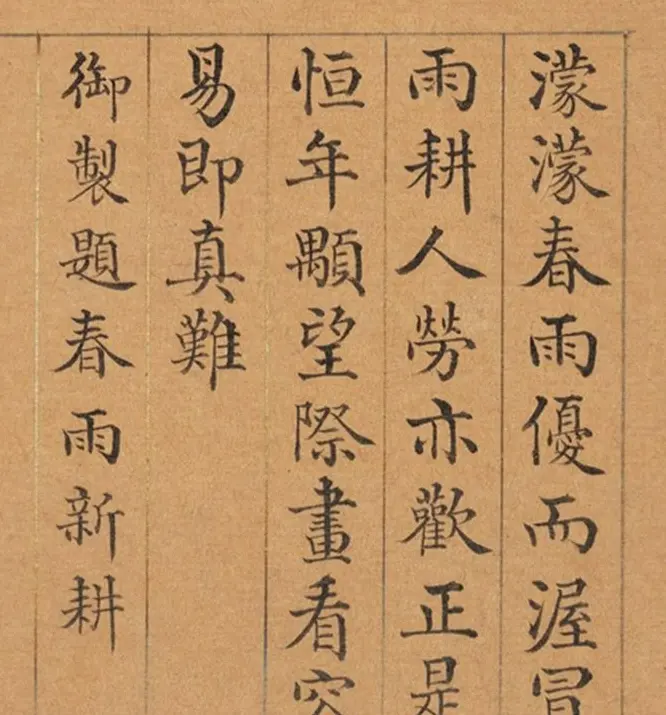 濛濛春雨優而渥冒
雨耕人勞亦歡正是
恒年顒望際畫看容
易即真難
御製題春雨新耕